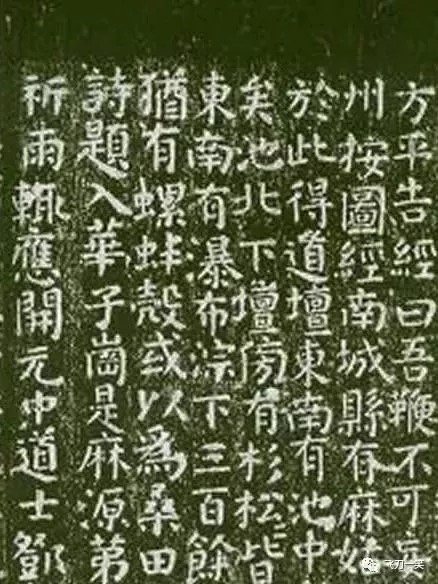 方平告經曰吾鞭不可妄
州按圖經南城縣有麻姑
於此得道壇東南有池中
矣池北下壇傍有杉松皆
東南有瀑布淙下三百餘
猶有螺蚌殼或以爲桑田
詩題入華子崗是麻源第
祈雨輙應開元中道士鄧